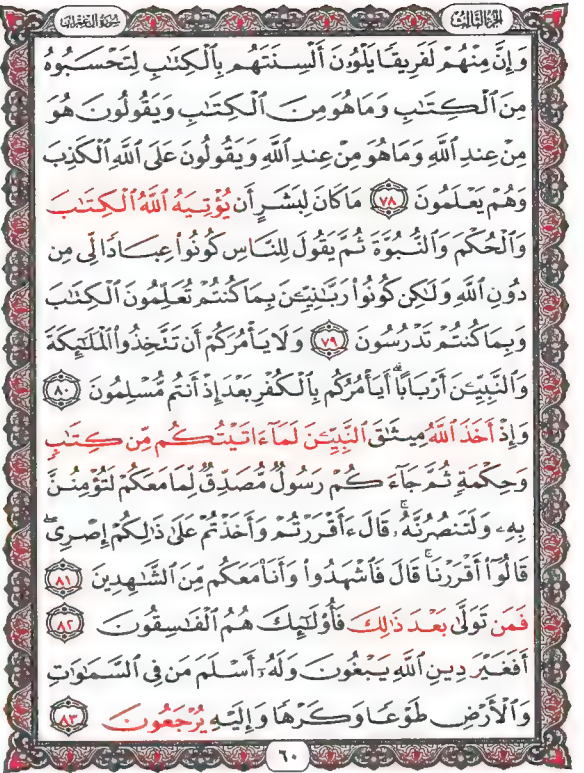 سُورَةُ آلِ عِمْرَانَ
الجُزءُ الثَّالِثُ
وَإِنَّ مِنْهُمْ لَفَرِيقًا يَلْوُۥنَ أَلْسِنَتَهُم بِالْكِتَٰبِ لِتَحْسَبُوهُ
مِنَ الْكِتَٰبِ وَمَا هُوَ مِنَ الْكِتَٰبِ وَيَقُولُونَ هُوَ
مِنْ عِندِ اللَّهِ وَمَا هُوَ مِنْ عِندِ اللَّهِ وَيَقُولُونَ عَلَى اللَّهِ الْكَذِبَ
وَهُمْ يَعْلَمُونَ ٧٨ مَا كَانَ لِبَشَرٍ أَن يُؤْتِيَهُ اللَّهُ الْكِتَٰبَ
وَالْحُكْمَ وَالنُّبُوَّةَ ثُمَّ يَقُولَ لِلنَّاسِ كُونُوا عِبَادًا لِّي مِن
دُونِ اللَّهِ وَلَٰكِن كُونُوا رَبَّٰنِيِّۦنَ بِمَا كُنتُمْ تُعَلِّمُونَ الْكِتَٰبَ
وَبِمَا كُنتُمْ تَدْرُسُونَ ٧٩ وَلَا يَأْمُرَكُمْ أَن تَتَّخِذُوا الْمَلَٰئِكَةَ
وَالنَّبِيِّۦنَ أَرْبَابًا ۗ أَيَأْمُرُكُم بِالْكُفْرِ بَعْدَ إِذْ أَنتُم مُّسْلِمُونَ ٨٠
وَإِذْ أَخَذَ اللَّهُ مِيثَٰقَ النَّبِيِّۦنَ لَمَا ءَاتَيْتُكُم مِّن كِتَٰبٍ
وَحِكْمَةٍ ثُمَّ جَاءَكُمْ رَسُولٌ مُّصَدِّقٌ لِّمَا مَعَكُمْ لَتُؤْمِنُنَّ
بِهِۦ وَلَتَنصُرُنَّهُۥ ۚ قَالَ ءَأَقْرَرْتُمْ وَأَخَذْتُمْ عَلَىٰ ذَٰلِكُمْ إِصْرِي ۖ
قَالُوا أَقْرَرْنَا ۚ قَالَ فَاشْهَدُوا وَأَنَا مَعَكُم مِّنَ الشَّٰهِدِينَ ٨١
فَمَن تَوَلَّىٰ بَعْدَ ذَٰلِكَ فَأُولَٰئِكَ هُمُ الْفَٰسِقُونَ ٨٢
أَفَغَيْرَ دِينِ اللَّهِ يَبْغُونَ وَلَهُۥ أَسْلَمَ مَن فِي السَّمَٰوَٰتِ
وَالْأَرْضِ طَوْعًا وَكَرْهًا وَإِلَيْهِ يُرْجَعُونَ ٨٣
٦٠